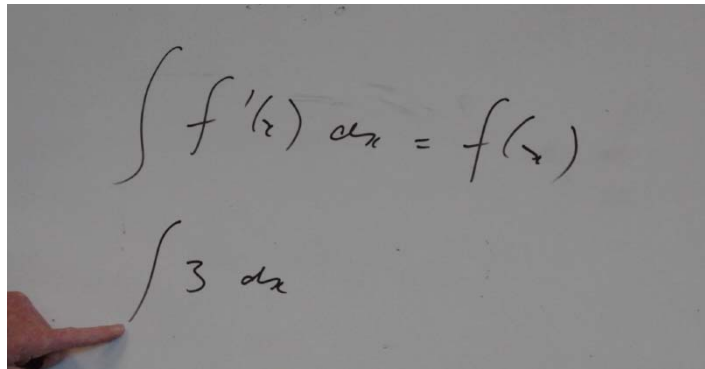 ∫ f'(x) dx = f(x)
∫ 3 dx